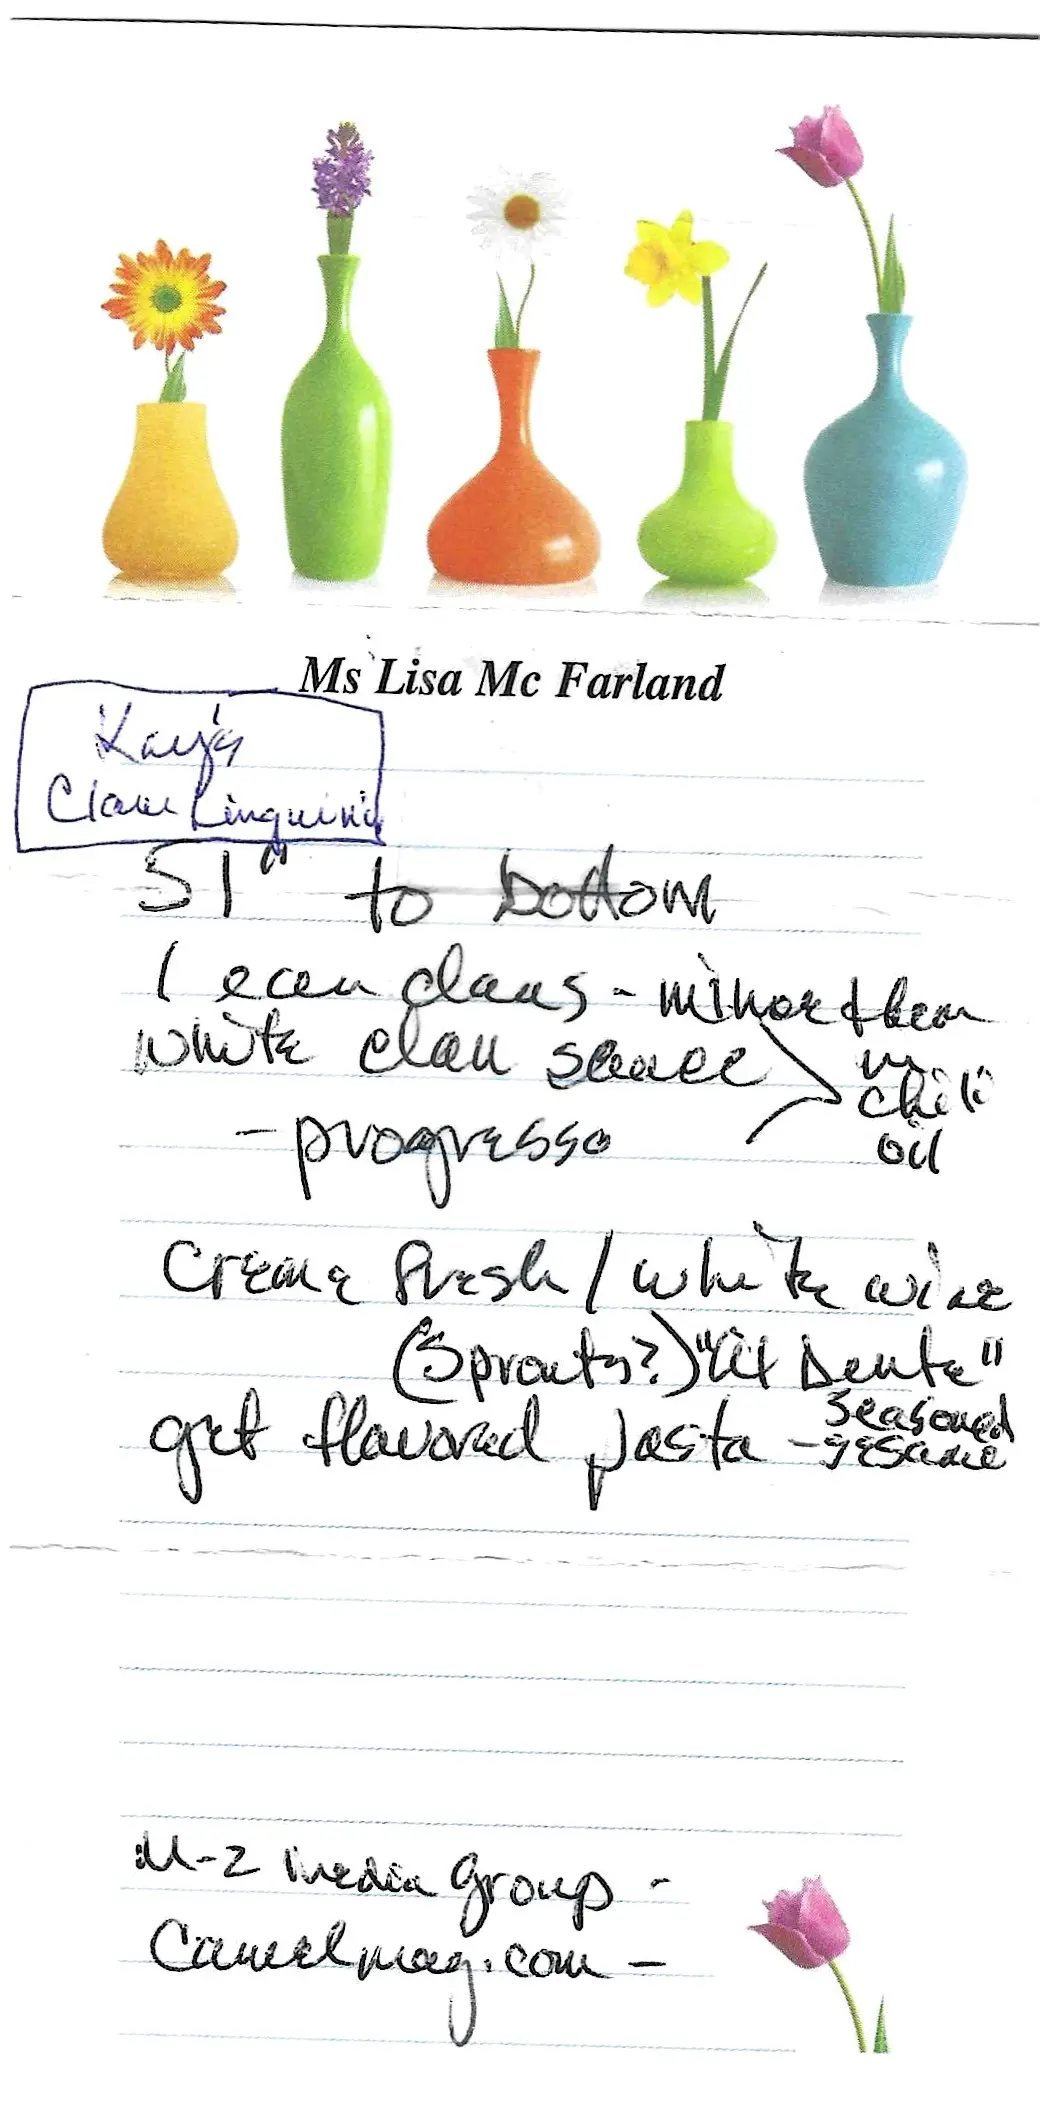 Ms Lisa Mc Farland
Kay's
Clam Linguini
51" to bottom
1 can clams - minor
white clam sauce
chili
oil
- progresso
Creme fresh / white wine
(Sprouts?) "Al Dente"
get flavored pasta - seasoned
sesame
M-2 media group -
Camelmag.com -